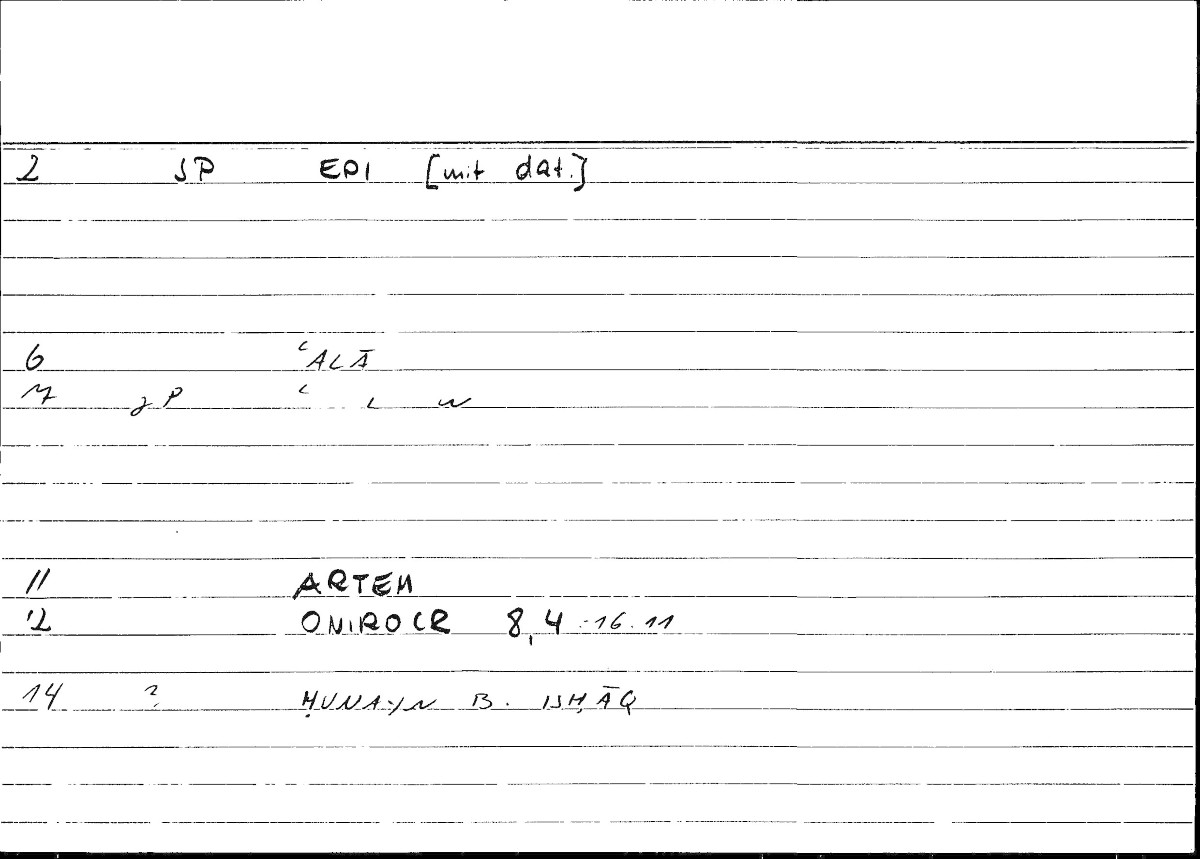 2 SP EPI [mit dat.]
6 ʿALĀ
7 P ʿ
11 ARTEM
12 ONIROCR 8,4-16.11
14 ? ḤUNAYN B. ISḤĀQ